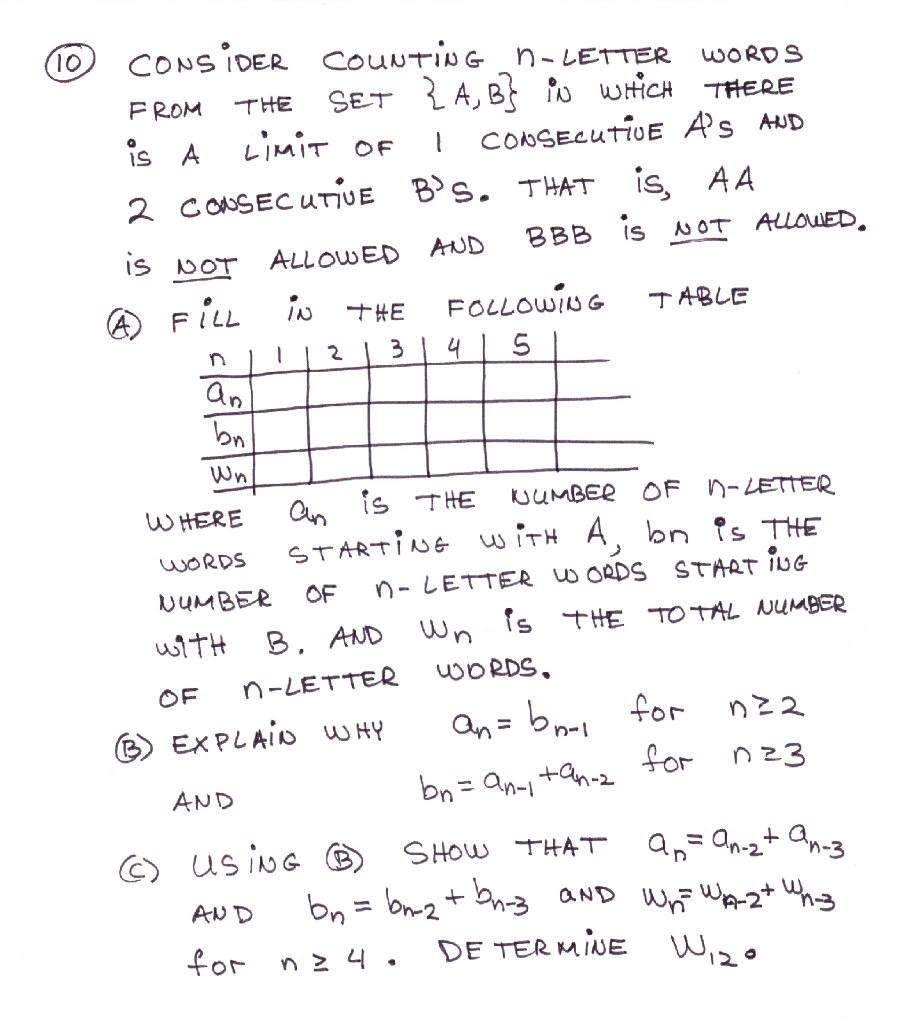 10 CONSIDER COUNTING n-LETTER WORDS
FROM THE SET {A, B} IN WHICH THERE
IS A LIMIT OF 1 CONSECUTIVE A'S AND
2 CONSECUTIVE B'S. THAT IS, AA
IS NOT ALLOWED AND BBB IS NOT ALLOWED.
A FILL IN THE FOLLOWING TABLE
n 1 2 3 4 5
aₙ
bₙ
Wₙ
WHERE aₙ IS THE NUMBER OF n-LETTER
WORDS STARTING WITH A, bn IS THE
NUMBER OF n-LETTER WORDS STARTING
WITH B. AND Wn IS THE TOTAL NUMBER
OF n-LETTER WORDS.
B EXPLAIN WHY aₙ = bₙ₋₁ for n≥2
AND bₙ = aₙ₋₁ + aₙ₋₂ for n≥3
C USING B SHOW THAT aₙ = aₙ₋₂ + aₙ₋₃
AND bₙ = bₙ₋₂ + bₙ₋₃ AND Wₙ = Wₙ₋₂ + Wₙ₋₃
for n ≥ 4. DETERMINE W₁₂.